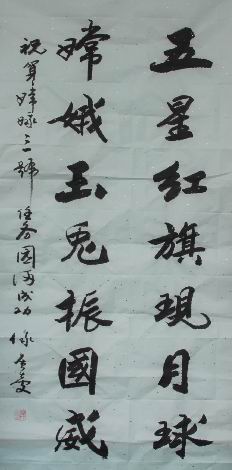 五星红旗現月球
嫦娥玉兎振國威
祝賀嫦娥三號任務圆满成功